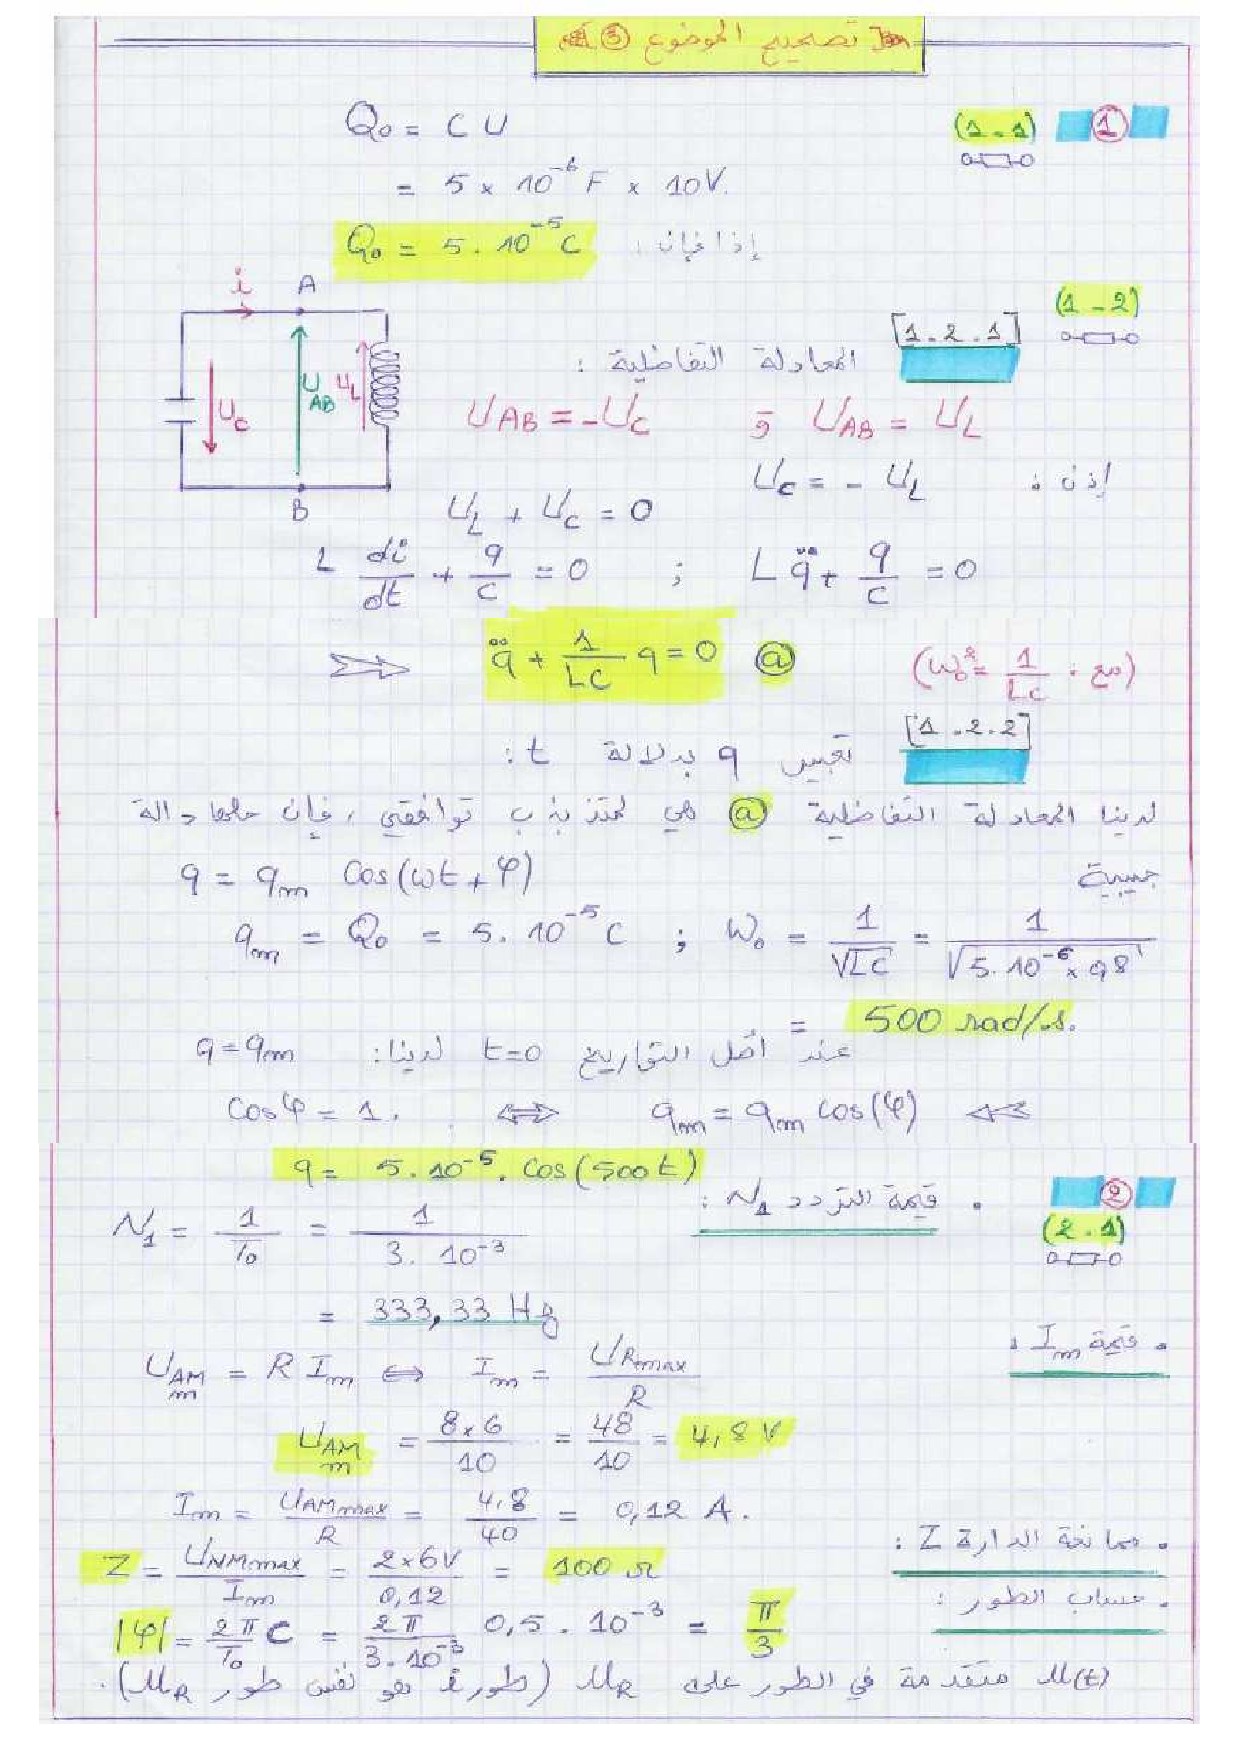 تصحيح الموضوع ③
① (1.1)
Q₀ = C U
= 5 × 10⁻⁶ F × 10V.
إذا فإن: Q₀ = 5 . 10⁻⁵ C
(1-2)
[1.2.1] المعادلة التفاضلية :
i A
U_C U_AB U_L
B
U_AB = U_L و U_AB = -U_C
إذن : U_C = - U_L
U_L + U_C = 0
L di/dt + q/C = 0 ; L q̈ + q/C = 0
⇒ q̈ + 1/LC q = 0 ⓐ (مع : ω₀² = 1/LC)
[1.2.2] تعبير q بدلالة t :
لدينا المعادلة التفاضلية ⓐ هي لمتذبذب توافقي ، فإن حلها دالة
جيبية q = q_m Cos(ωt + φ)
q_m = Q₀ = 5. 10⁻⁵ C ; ω₀ = 1/√LC = 1/√5.10⁻⁶ × 0,8
= 500 rad/s.
عند أصل التواريخ t=0 لدينا: q = q_m
q_m = q_m cos(φ) ⇔ cos φ = 1.
q = 5.10⁻⁵. cos(500t)
② (2.1)
. قيمة التردد N₁ :
N₁ = 1/T₀ = 1/3. 10⁻³
= 333,33 Hz
. قيمة I_m :
U_AMm = R I_m ⇔ I_m = U_Rmax/R
U_AMm = 8×6/10 = 48/10 = 4,8 V
I_m = U_AMmax/R = 4,8/40 = 0,12 A.
. ممانعة الدارة Z :
Z = U_NMmax/I_m = 2×6V/0,12 = 100 Ω
. حساب الطور :
|φ| = 2π/T₀ τ = 2π/3.10⁻³ 0,5 . 10⁻³ = π/3
u(t) متقدمة في الطور على u_R (طور i هو نفس طور u_R).